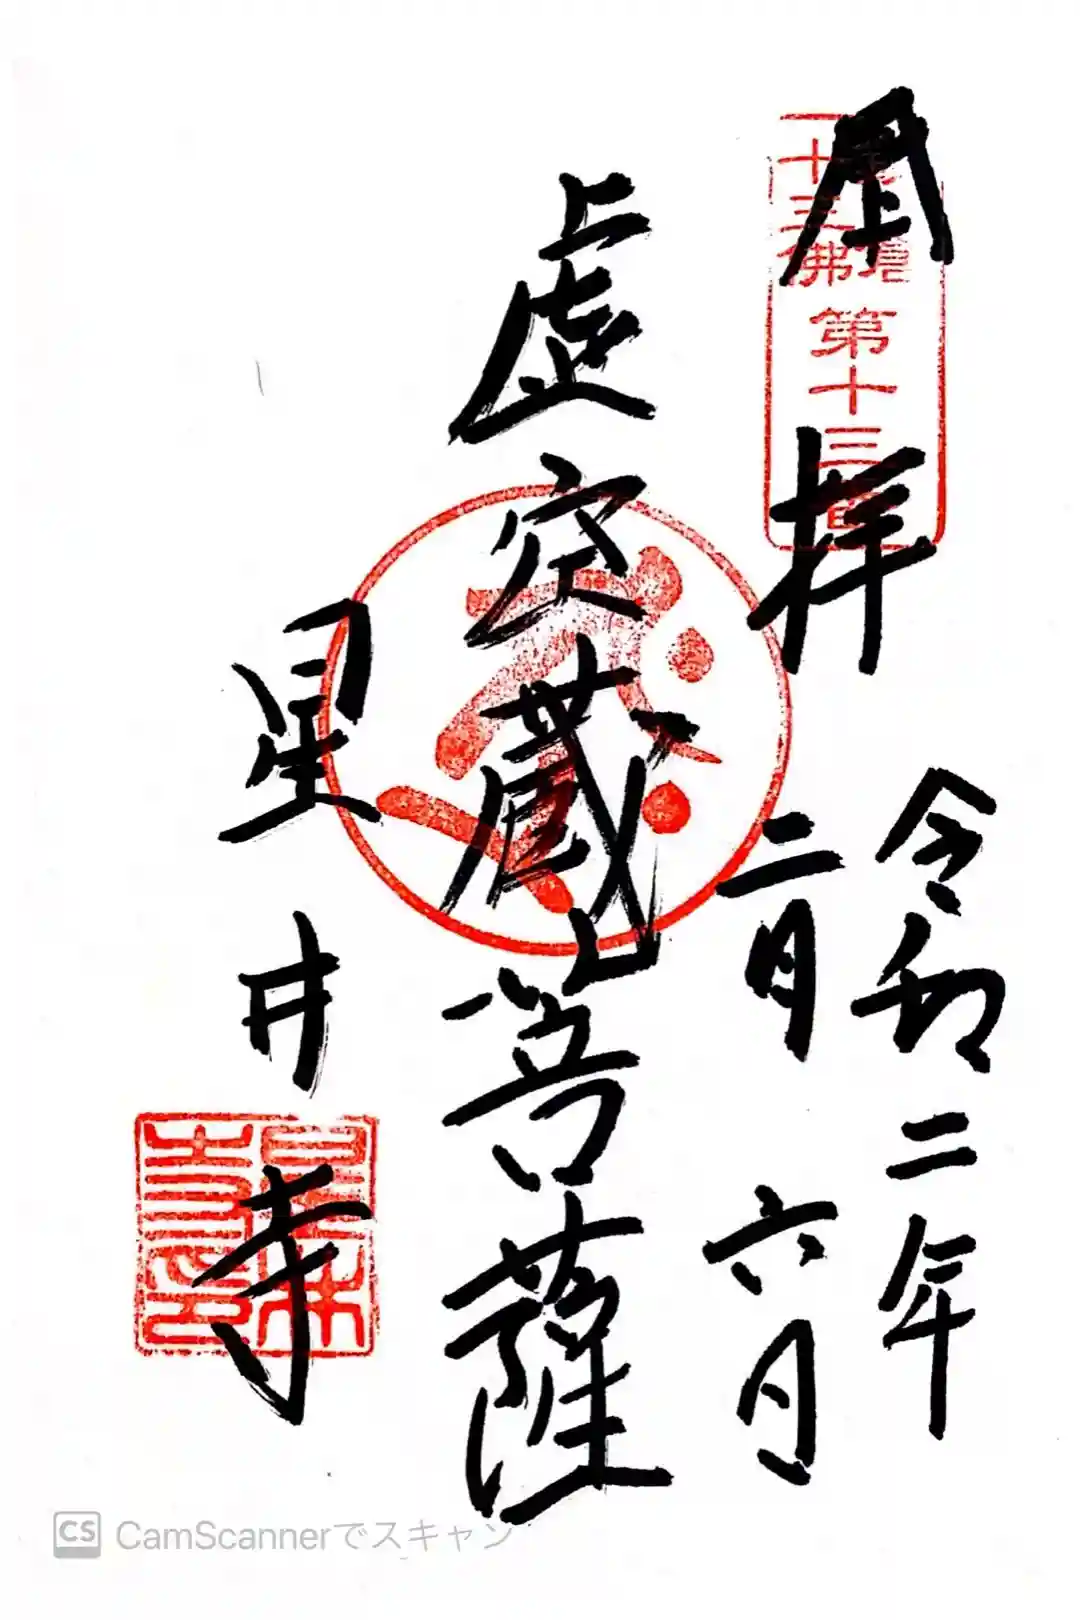 拝
鎌倉
十三佛
第十三番
令和二年
二月六日
虚空蔵菩薩
星井寺
星井
寺印
CS CamScannerでスキャン